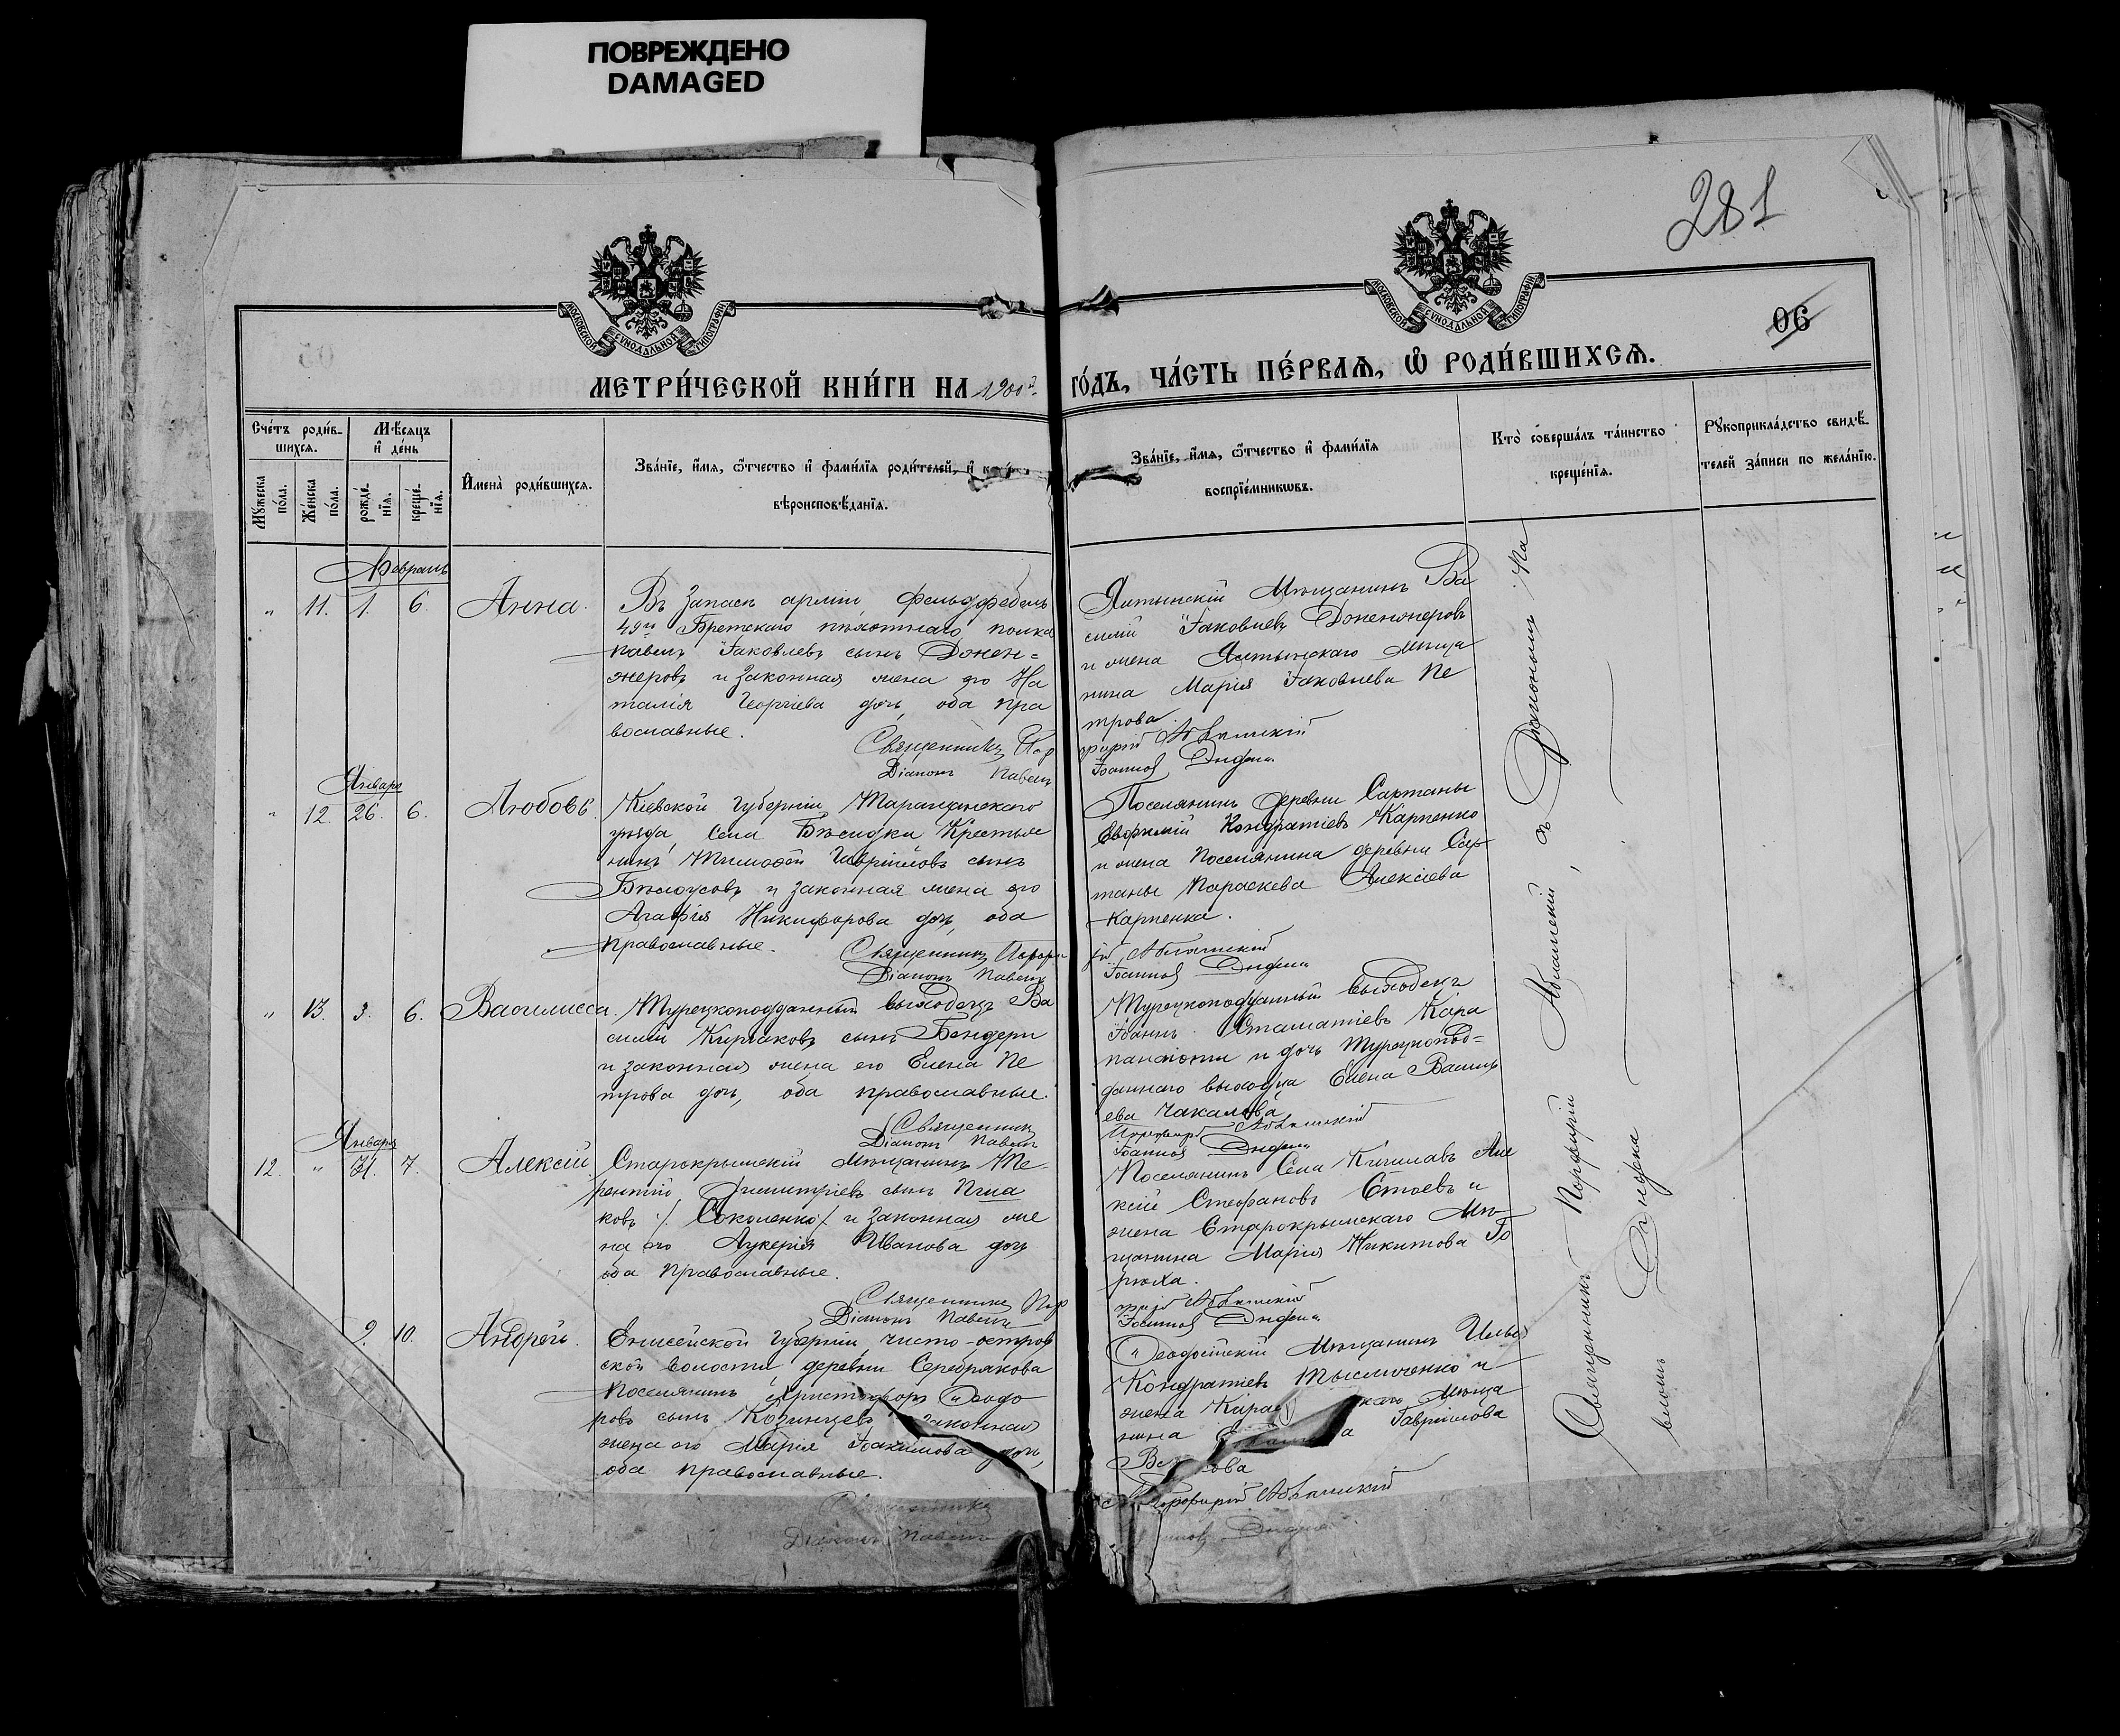 ПОВРЕЖДЕНО
DAMAGED
281
06
МОСКОВСКОЙ СУНОДАЛЬНОЙ ТИПОГРАФІИ
МОСКОВСКОЙ СУНОДАЛЬНОЙ ТИПОГРАФІИ
МЕТРИ́ЧЕСКОЙ КНИ́ГИ НА 1900й ГО́ДЪ, ЧА́СТЬ ПЕ́РВАѦ, Ѡ҆ РОДИ́ВШИХСѦ.
Сче́тъ роди́в-
шихся.
Мѣ́сяцъ
и҆ де́нь
Мꙋ́жеска по́ла.
Же́нска по́ла.
рожде́-нїя.
креще́-нїя.
И҆мена̀ роди́вшихся.
Зва́нїе, и҆́мя, ѻ҆́тчество и҆ фами́лїя роди́телей, и҆
вѣроисповѣ́данїя.
Зва́нїе, и҆́мя, ѻ҆́тчество и҆ фами́лїя
воспрїе́мникѡвъ.
Кто̀ соверша́лъ та́инство
креще́нїя.
Рꙋкоприкла́дство свидѣ́-
телей за́писи по жела́нїю.
Февраль
" 11. 1. 6. Анна.
Въ запасѣ арміи фельдфебель
49го Бретскаго пѣхотнаго полка
Павелъ Іаковлевъ сынъ Донен=
жеровъ и законная жена его На
талія Георгіева дочь, оба пра
вославные.
Священникъ Пор
Діаконъ Павелъ
Ялтынскій Мѣщанинъ Ва
силій Іаковлевъ Доненжеровъ
и жена Ялтынскаго мѣща
нина Марія Іаковлева Пе
трова.
фирій Абламскій
Іоанновъ Дифка
Январь
" 12. 26. 6. Любовь
Кіевской губерніи Таращанскаго
уѣзда, Села Бѣсидки Крестья
нинъ Тимоѳей Гавріиловъ сынъ
Бѣлоусовъ и законная жена его
Агафія Никифорова дочь, оба
православные.
Священникъ Порфи
Діаконъ Павелъ
Поселянинъ деревни Сартаны
Евфимій Кондратіевъ Карпенко
и жена Поселянина деревни Сар
таны Параскева Алексіева
Карпенка.
рій Абламскій
Іоанновъ Дифка
" 13. 3. 6. Василисса.
Турецкоподданный выходецъ Ва
силій Киріаковъ сынъ Бендери
и законная жена его Елена Пе
трова дочь, оба православные.
Священникъ
Діаконъ Павелъ
Турецкоподданный выходецъ
Іоаннъ Стаматіевъ Кара
панаіоти и дочь Турецкопод=
даннаго выходца Елена Василь
ева Чакалова
Порфирій Абламскій
Іоанновъ Дифка
Января
12. " 31. 7. Алексій
Старокрымскій Мѣщанинъ Те-
рентій Димитріевъ сынъ Плиа
ковъ /Соколенко/ и законная же
на его Лукерія Иванова дочь
оба православные.
Священникъ Пор
Діаконъ Павелъ
Поселянинъ Села Кишлавъ Але
ксій Стефановъ Стоевъ и
жена Старокрымскаго Мѣ-
щанина Марія Никитова Го
рюха.
фирій Абламскій
Іоанновъ Дифка
9. 10. Андрей.
Енисейской Губерніи, Чисто-остров
ской волости деревни Серебрякова
Поселянинъ Христофоръ Ѳеодо
ровъ сынъ Козинцевъ законная
жена его Марія Іоакимова дочь,
оба православные.
Священникъ
Діаконъ Павелъ
Ѳеодосійскій Мѣщанинъ Илья
Кондратіевъ Тысяченко и
жена Карас каго Мѣща
нина Гавріилова
ова
Порфирій Абламскій
Дифка
Священникъ Порфирій Абламскій, съ Діакономъ Па
вломъ Дифка